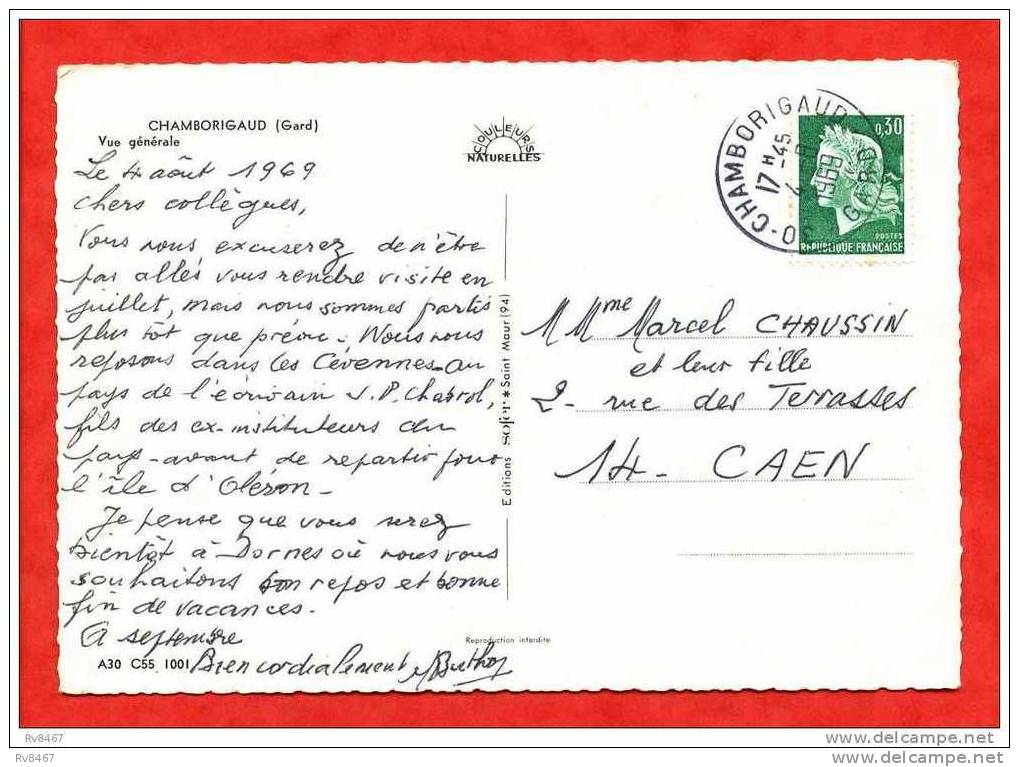 CHAMBORIGAUD (Gard)
Vue générale
COULEURS
NATURELLES
Le 4 août 1969
chers collègues,
Vous nous excuserez de n'être
pas allés vous rendre visite en
juillet, mais nous sommes partis
plus tôt que prévu - Nous nous
reposons dans les Cévennes - au
pays de l'écrivain J.P. Chabrol,
fils des ex-instituteurs du
pays - avant de repartir pour
l'île d'Oléron -
Je pense que vous serez
bientôt à Dornes où nous vous
souhaitons bon repos et bonne
fin de vacances -
A septembre
Bien cordialement
A30 C55 1001
Editions sofer * Saint Maur (94)
Reproduction interdite
30 - CHAMBORIGAUD
17 H 45
4 - 8
1969
GARD
0,30
POSTES
REPUBLIQUE FRANÇAISE
M Mme Marcel CHAUSSIN
et leur fille
2 - rue des Terrasses
14 - CAEN
Rv8467
Rv8467
delcampe.net
delcampe.net